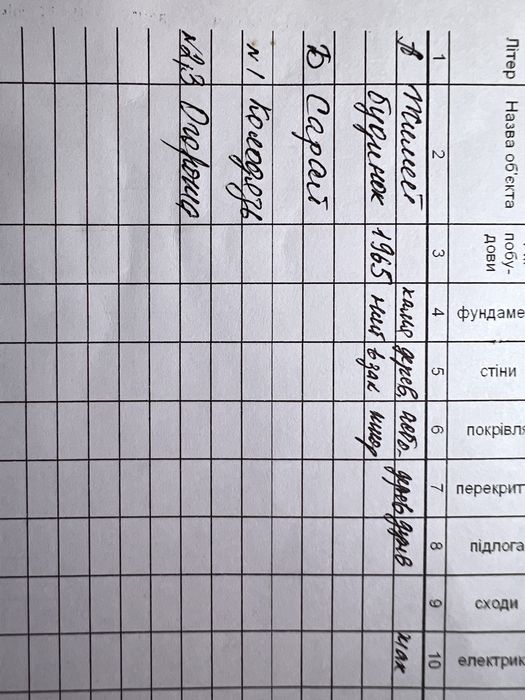 Літер Назва об'єкта побу- дови фундаме стіни покрівля перекрит підлога сходи електрик
1 2 3 4 5 6 7 8 9 10
А Жилий камя дерев, азбо- дерев дерев так
будинок 1965 ний в зак шифер
Б Сарай
№1 Колодязь
№2,3 Огорожа